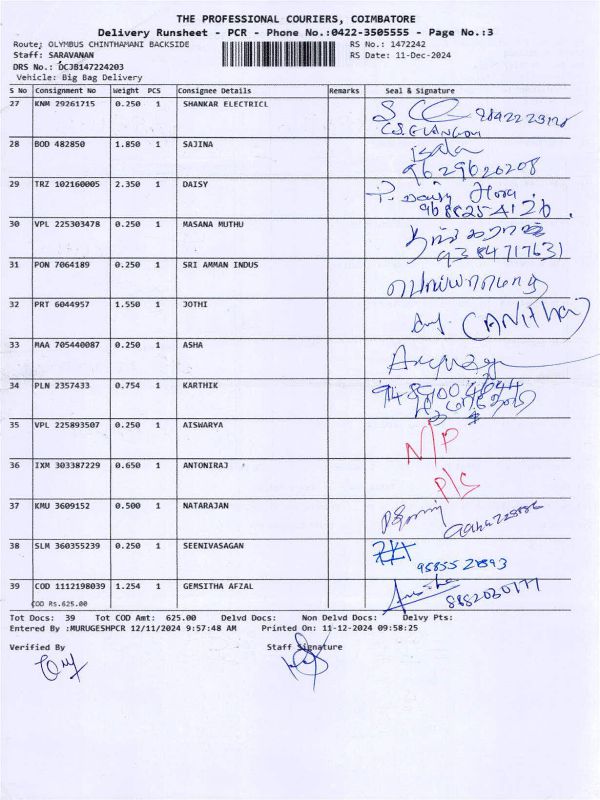 THE PROFESSIONAL COURIERS, COIMBATORE
Delivery Runsheet - PCR - Phone No.:0422-3505555 - Page No.:3
Route; OLYMBUS CHINTHAMANI BACKSIDE RS No.: 1472242
Staff: SARAVANAN RS Date: 11-Dec-2024
DRS No.: DCJB147224203
Vehicle: Big Bag Delivery
S No Consignment No Weight PCS Consignee Details Remarks Seal & Signature
27 KNM 29261715 0.250 1 SHANKAR ELECTRICL
28 BOD 482850 1.850 1 SAJINA
9629626208
29 TRZ 102160005 2.350 1 DAISY P. Daisy
9688254126.
30 VPL 225303478 0.250 1 MASANA MUTHU
9384717631
31 PON 7064189 0.250 1 SRI AMMAN INDUS
32 PRT 6044957 1.550 1 JOTHI
33 MAA 705440087 0.250 1 ASHA
34 PLN 2357433 0.754 1 KARTHIK
35 VPL 225893507 0.250 1 AISWARYA N/P
36 IXM 303387229 0.650 1 ANTONIRAJ P/S
37 KMU 3609152 0.500 1 NATARAJAN
38 SLM 360355239 0.250 1 SEENIVASAGAN
39 COD 1112198039 1.254 1 GEMSITHA AFZAL
COD Rs.625.00
Tot Docs: 39 Tot COD Amt: 625.00 Delvd Docs: Non Delvd Docs: Delvy Pts:
Entered By :MURUGESHPCR 12/11/2024 9:57:48 AM Printed On: 11-12-2024 09:58:25
Verified By Staff Signature